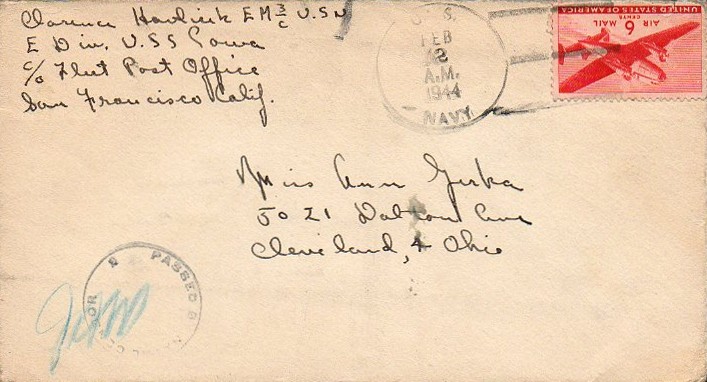 Clarence Havlicek EM 3/c U.S.N
E Div. U.S.S Iowa
c/o Fleet Post Office
San Francisco Calif.
U.S.
FEB
A.M.
1944
NAVY
UNITED STATES OF AMERICA
6 CENTS AIR MAIL
Miss Ann
5021 Ave
Cleveland, 4 Ohio
PASSED